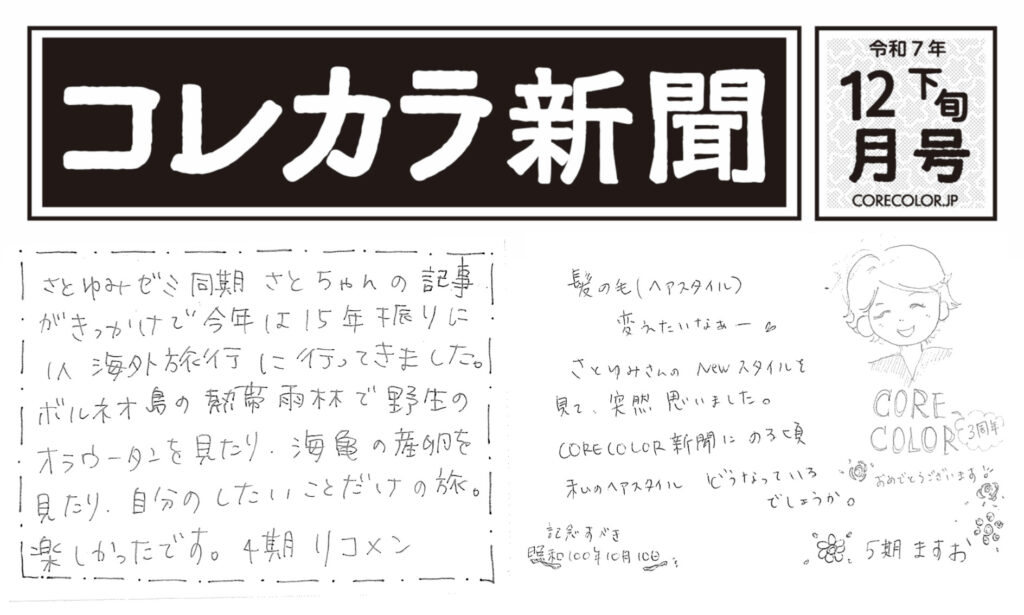 コレカラ新聞
令和7年
12月下旬号
CORECOLOR.JP
さとゆみゼミ同期 さとちゃんの記事
がきっかけで今年は15年振りに
1人海外旅行に行ってきました。
ボルネオ島の熱帯雨林で野生の
オラウータンを見たり、海亀の産卵を
見たり、自分のしたいことだけの旅。
楽しかったです。4期 リコメン
髪の毛(ヘアスタイル)
変えたいなぁー
さとゆみさんの Newスタイルを
見て、突然思いました。
CORECOLOR新聞にのる頃
私のヘアスタイル どうなっている
でしょうか。
記念すべき
昭和100年10月10日
CORE
COLOR
3周年
おめでとうございます!!
5期 ますお